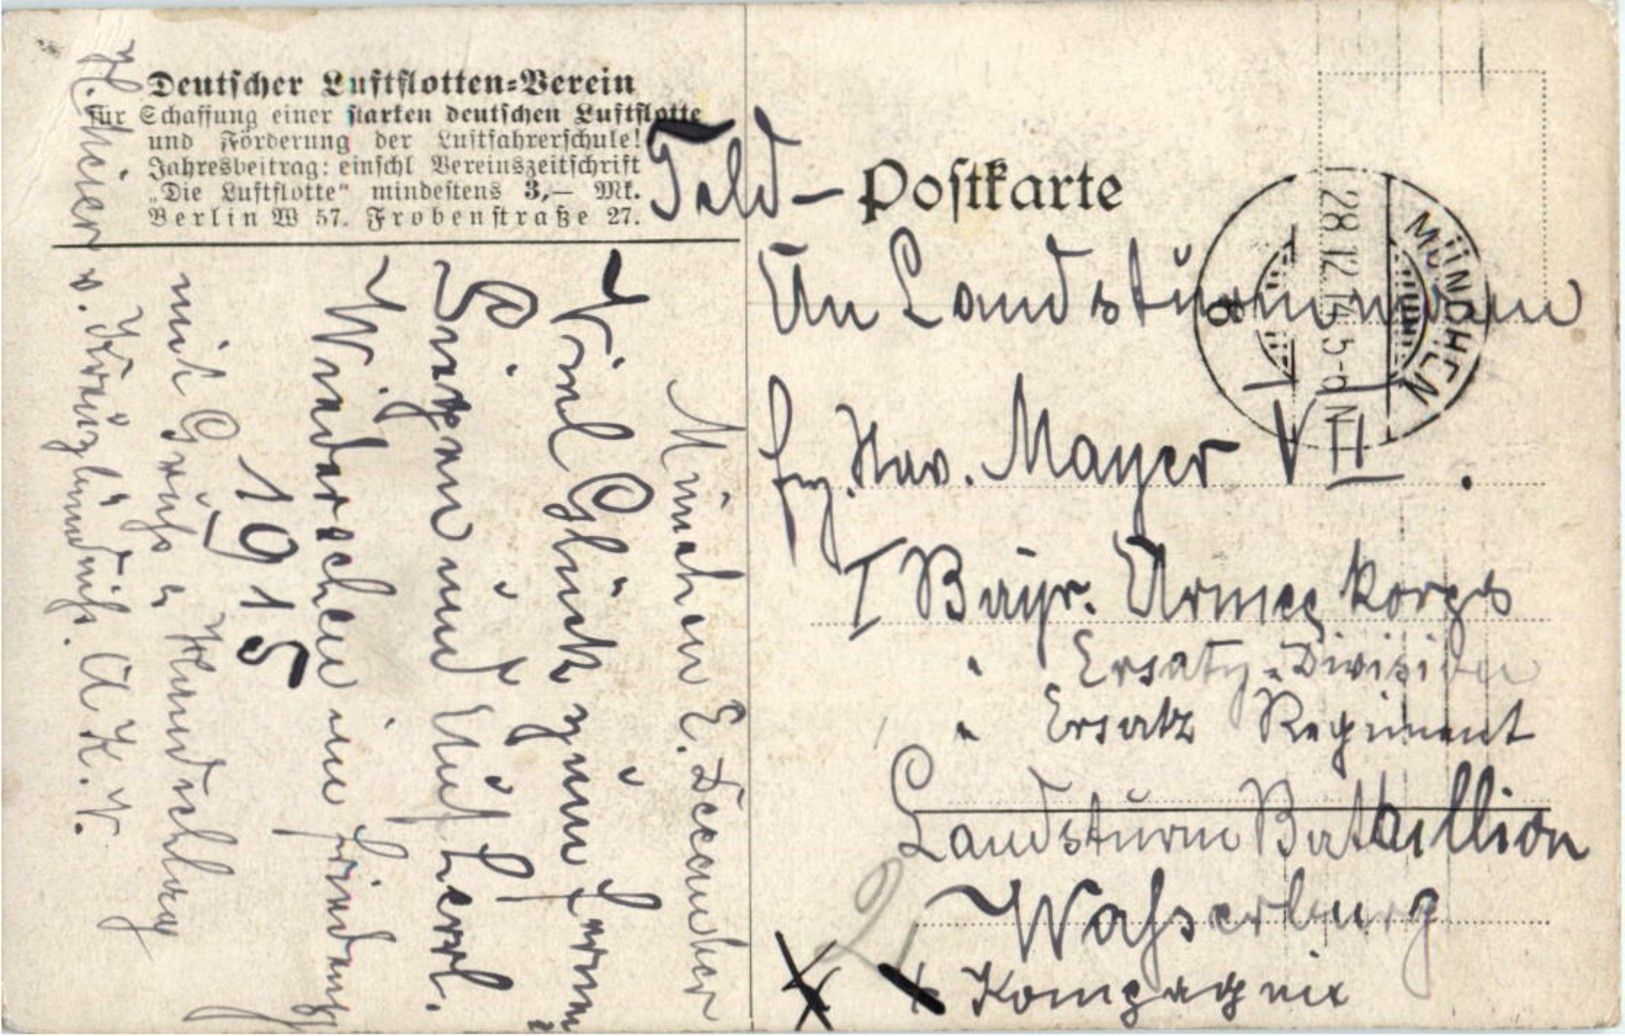 Deutscher Luftflotten-Verein
für Schaffung einer starken deutschen Luftflotte
und Förderung der Luftfahrerschule!
Jahresbeitrag: einschl Vereinszeitschrift
„Die Luftflotte“ mindestens 3,— Mk.
Berlin W 57. Frobenstraße 27.
Feld- Postkarte
MÜNCHEN
28.12.14. 5-6 N
8
An Landsturmmann
Xav. Mayer VII.
I Bayr. Armee korps
" Ersatz-Division
" Ersatz Regiment
Landsturm Batallion
Wasserburg
2
4 Kompagnie
München E. December
Viel Glück zum fernn
Siegen und
Wiedersehen im
1915
mit Gruß u Handschlag
H. Meier
v. A. K. V.